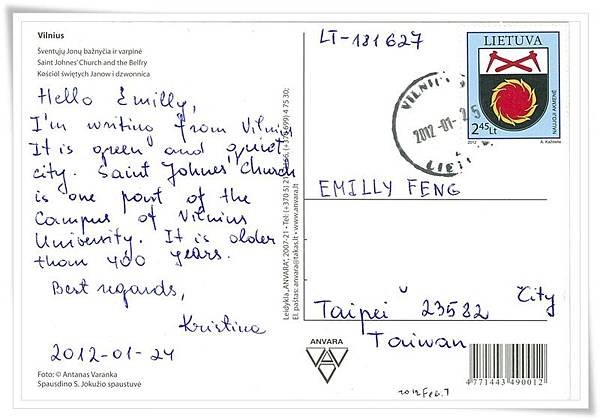 Vilnius
Šventųjų Jonų bažnyčia ir varpinė
Saint Johnes' Church and the Belfry
Kościół świętych Janow i dzwonnica
Hello Emilly,
I'm writing from Vilnius.
It is green and quiet
city. Saint Johnes' Church
is one part of the
Campus of Vilnius
University. It is older
than 400 years.
Best regards,
Kristina
2012-01-24
Foto: © Antanas Varanka
Spausdino S. Jokužio spaustuvė
Leidykla „ANVARA", 2007-21 • Tel.: (+370 5) 21
El. paštas: anvara@takas.lt • www.anvara.lt
LT-181627
LIETUVA
NAUJOJI AKMENĖ
2,45 Lt
2012
VILNIUS
2012-01-25
EMILLY FENG
Taipei 23582 City
Taiwan
ANVARA
4 771443 490012
2012 Feb. 7